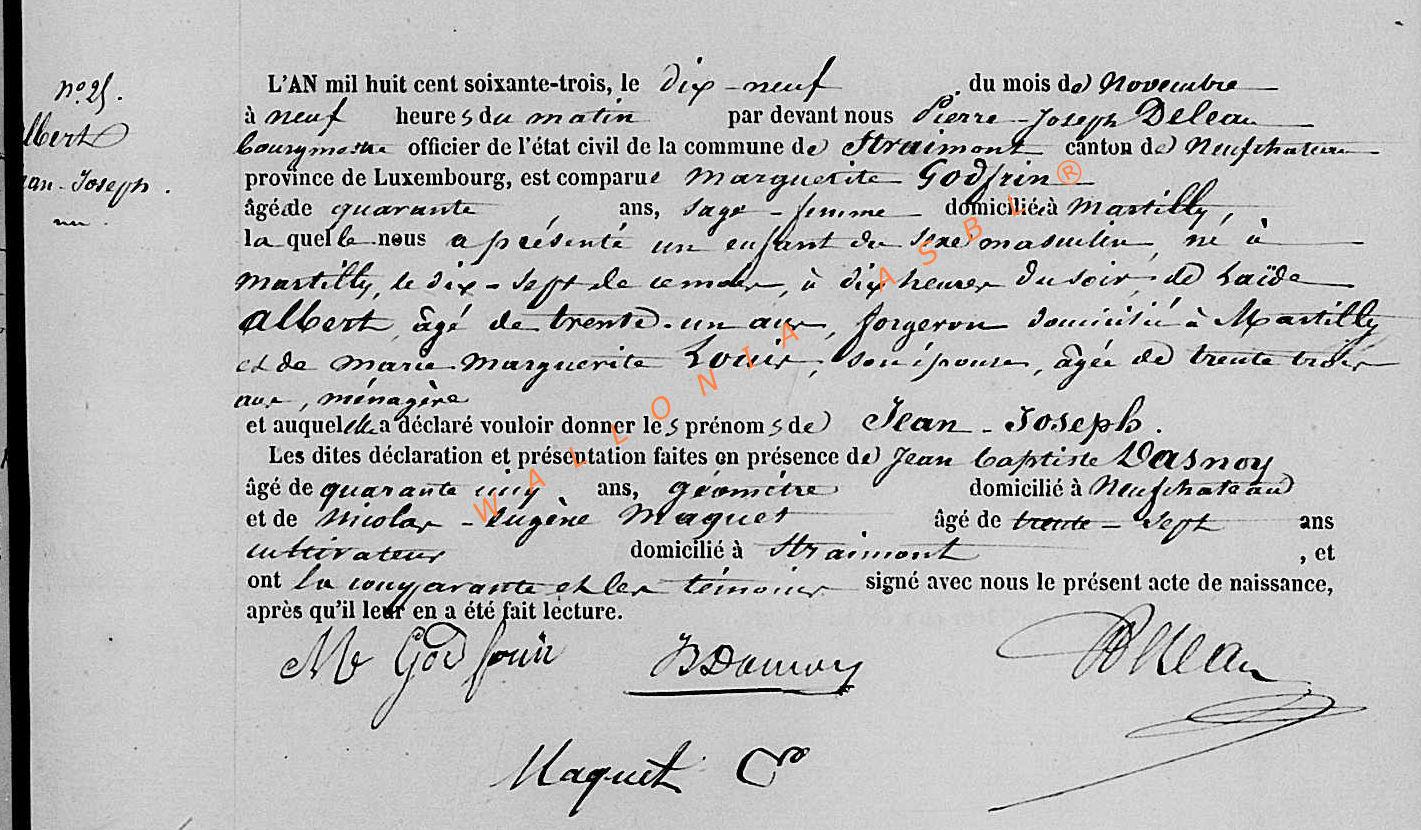 n° 25.
lbert
an - Joseph.
L'AN mil huit cent soixante-trois, le dix-neuf du mois de Novembre
à neuf heures du matin par devant nous Pierre-Joseph Deleau
bourgmestre officier de l'état civil de la commune de Straimont canton de Neufchateau
province de Luxembourg, est comparue Marguerite Godfrin
âgée de quarante ans, sage-femme domiciliée à Martilly,
la quelle nous a présenté un enfant du sexe masculin, né à
Martilly, le dix-sept de ce mois, à dix heures du soir, de Laïde
Albert, âgé de trente-un ans, forgeron domicilié à Martilly
et de Marie Marguerite Louis, son épouse, âgée de trente trois
ans, ménagère
et auquel elle a déclaré vouloir donner les prénoms de Jean-Joseph.
Les dites déclaration et présentation faites en présence de Jean Baptiste Dasnoy
âgé de quarante cinq ans, géomètre domicilié à Neufchateau
et de Nicolas-Eugène Maquet âgé de trente-sept ans
cultivateur domicilié à Straimont, et
ont la comparante et les témoins signé avec nous le présent acte de naissance,
après qu'il leur en a été fait lecture.
Godfrin JBDasnoy Deleau
Maquet
WALLONIA ASBL®